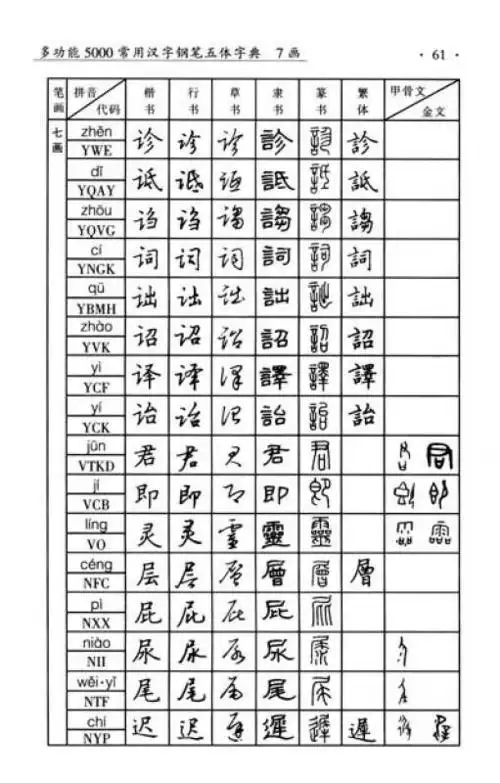 多功能 5000 常用汉字钢笔五体字典 7画 · 61 ·
笔画 拼音 代码 楷书 行书 草书 隶书 篆书 繁体 甲骨文 金文
七画 zhěn YWE 诊 诊 诊 診 診 診
dǐ YQAY 诋 诋 诋 詆 詆 詆
zhōu YQVG 诌 诌 诌 謅 謅 謅
cí YNGK 词 词 词 詞 詞 詞
qū YBMH 诎 诎 诎 詘 詘 詘
zhào YVK 诏 诏 诏 詔 詔 詔
yì YCF 译 译 译 譯 譯 譯
yí YCK 诒 诒 诒 詒 詒 詒
jūn VTKD 君 君 君 君 君 君 君
jí VCB 即 即 即 即 即 即 即
líng VO 灵 灵 靈 靈 靈
céng NFC 层 层 层 層 層 層
pì NXX 屁 屁 屁 屁
niào NII 尿 尿 尿 尿 尿 尿
wěi·yǐ NTF 尾 尾 尾 尾 尾 尾
chí NYP 迟 迟 遲 遲 遲 遲